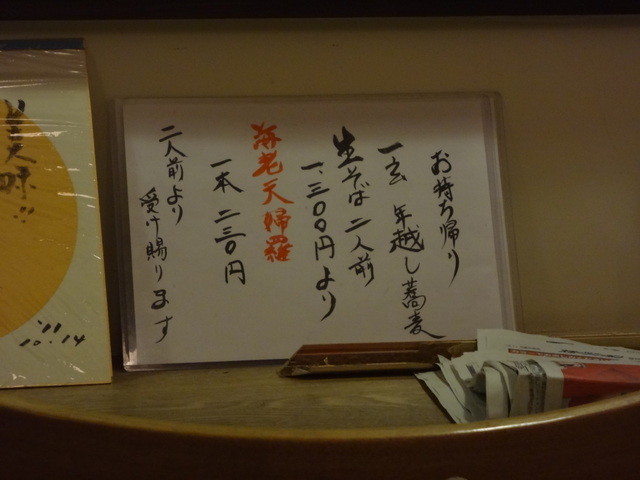 お持ち帰り
一玄 年越し蕎麦
生そば 二人前
一、三〇〇円より
海老天婦羅
一本 二三〇円
二人前より
受け賜ります
美味!!
'11
10.14